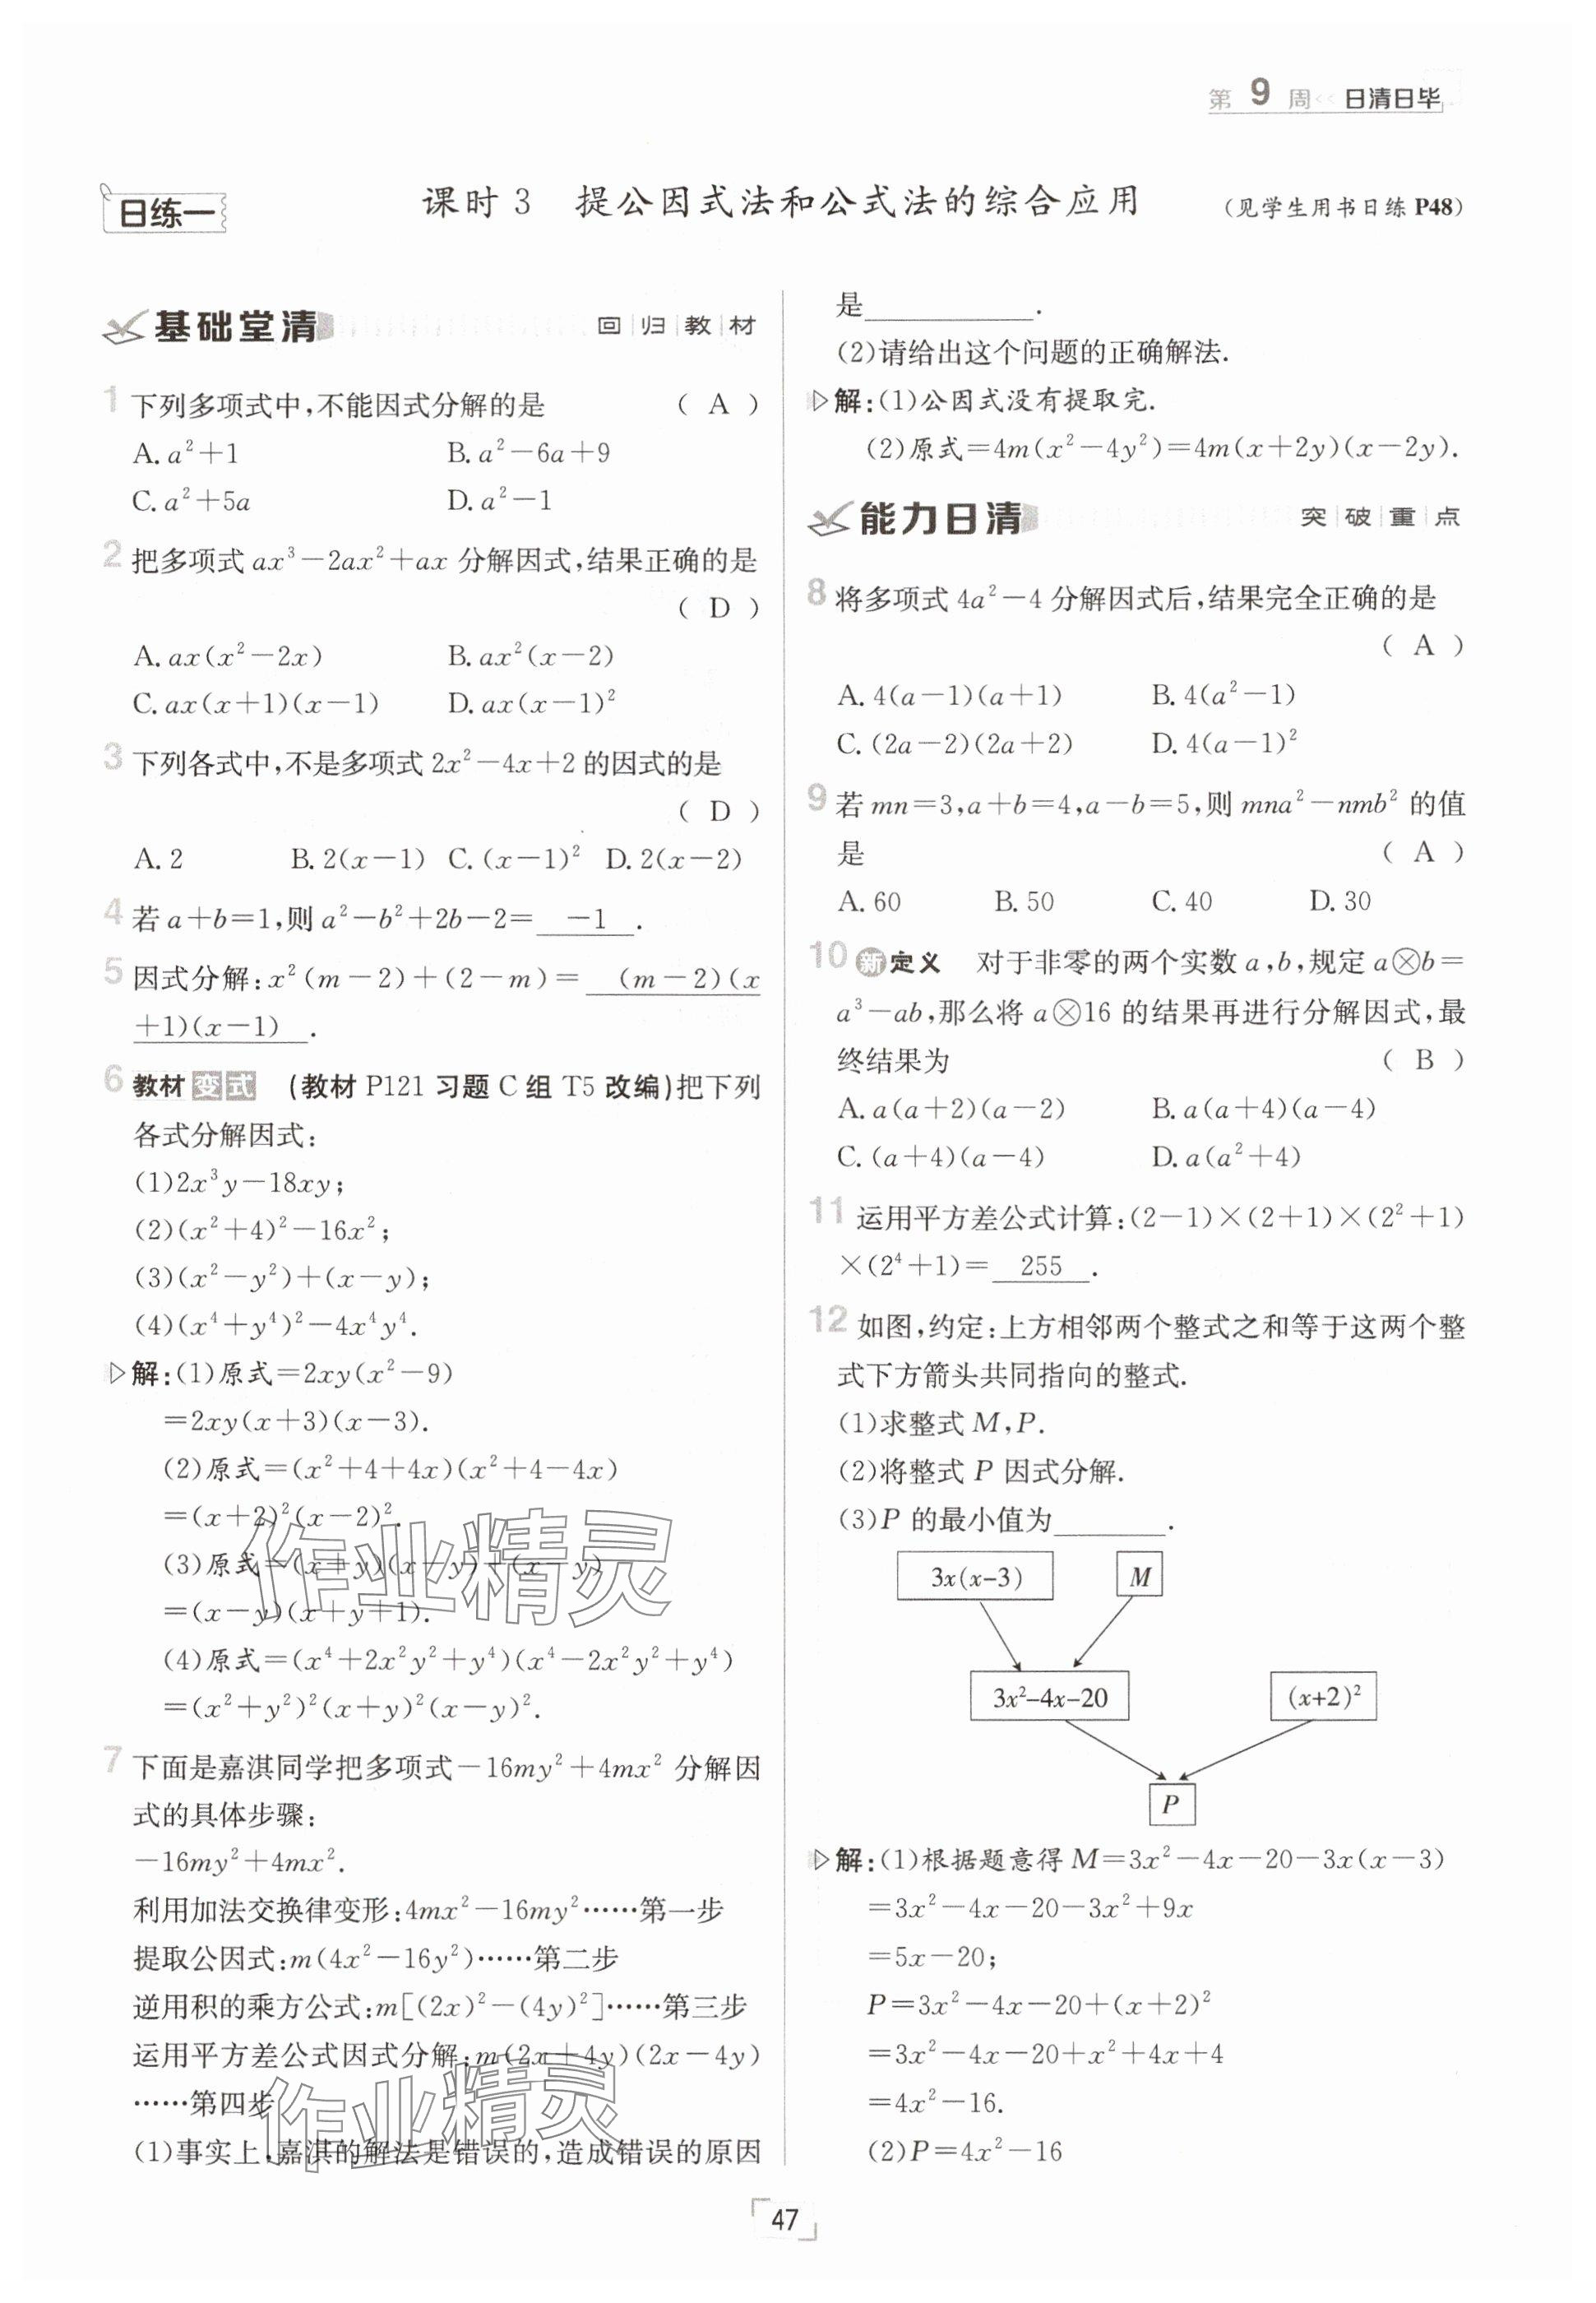 第9周<< 日清日毕
日练一
课时3 提公因式法和公式法的综合应用
(见学生用书日练P48)
基础堂清 回|归|教|材
1 下列多项式中,不能因式分解的是 ( A )
A. a²+1 B. a²-6a+9
C. a²+5a D. a²-1
2 把多项式 ax³-2ax²+ax 分解因式,结果正确的是
( D )
A. ax(x²-2x) B. ax²(x-2)
C. ax(x+1)(x-1) D. ax(x-1)²
3 下列各式中,不是多项式 2x²-4x+2 的因式的是
( D )
A. 2 B. 2(x-1) C. (x-1)² D. 2(x-2)
4 若 a+b=1,则 a²-b²+2b-2= -1 .
5 因式分解:x²(m-2)+(2-m)= (m-2)(x
+1)(x-1) .
6 教材变式 (教材 P121 习题 C 组 T5 改编)把下列
各式分解因式:
(1)2x³y-18xy;
(2)(x²+4)²-16x²;
(3)(x²-y²)+(x-y);
(4)(x⁴+y⁴)²-4x⁴y⁴.
▷解:(1)原式=2xy(x²-9)
=2xy(x+3)(x-3).
(2)原式=(x²+4+4x)(x²+4-4x)
=(x+2)²(x-2)².
(3)原式=(x+y)(x-y)+(x-y)
=(x-y)(x+y+1).
(4)原式=(x⁴+2x²y²+y⁴)(x⁴-2x²y²+y⁴)
=(x²+y²)²(x+y)²(x-y)².
作业精灵
7 下面是嘉淇同学把多项式-16my²+4mx² 分解因
式的具体步骤:
-16my²+4mx².
利用加法交换律变形:4mx²-16my²……第一步
提取公因式:m(4x²-16y²)……第二步
逆用积的乘方公式:m[(2x)²-(4y)²]……第三步
运用平方差公式因式分解:m(2x+4y)(2x-4y)
……第四步
(1)事实上,嘉淇的解法是错误的,造成错误的原因
作业精灵
是____________.
(2)请给出这个问题的正确解法.
▷解:(1)公因式没有提取完.
(2)原式=4m(x²-4y²)=4m(x+2y)(x-2y).
能力日清 突|破|重|点
8 将多项式 4a²-4 分解因式后,结果完全正确的是
( A )
A. 4(a-1)(a+1) B. 4(a²-1)
C. (2a-2)(2a+2) D. 4(a-1)²
9 若 mn=3,a+b=4,a-b=5,则 mna²-nmb² 的值
是 ( A )
A. 60 B. 50 C. 40 D. 30
10 新定义 对于非零的两个实数 a,b,规定 a⊗b=
a³-ab,那么将 a⊗16 的结果再进行分解因式,最
终结果为 ( B )
A. a(a+2)(a-2) B. a(a+4)(a-4)
C. (a+4)(a-4) D. a(a²+4)
11 运用平方差公式计算:(2-1)×(2+1)×(2²+1)
×(2⁴+1)= 255 .
12 如图,约定:上方相邻两个整式之和等于这两个整
式下方箭头共同指向的整式.
(1)求整式 M,P.
(2)将整式 P 因式分解.
(3)P 的最小值为________.
3x(x-3) M
3x²-4x-20 (x+2)²
P
▷解:(1)根据题意得 M=3x²-4x-20-3x(x-3)
=3x²-4x-20-3x²+9x
=5x-20;
P=3x²-4x-20+(x+2)²
=3x²-4x-20+x²+4x+4
=4x²-16.
(2)P=4x²-16
47